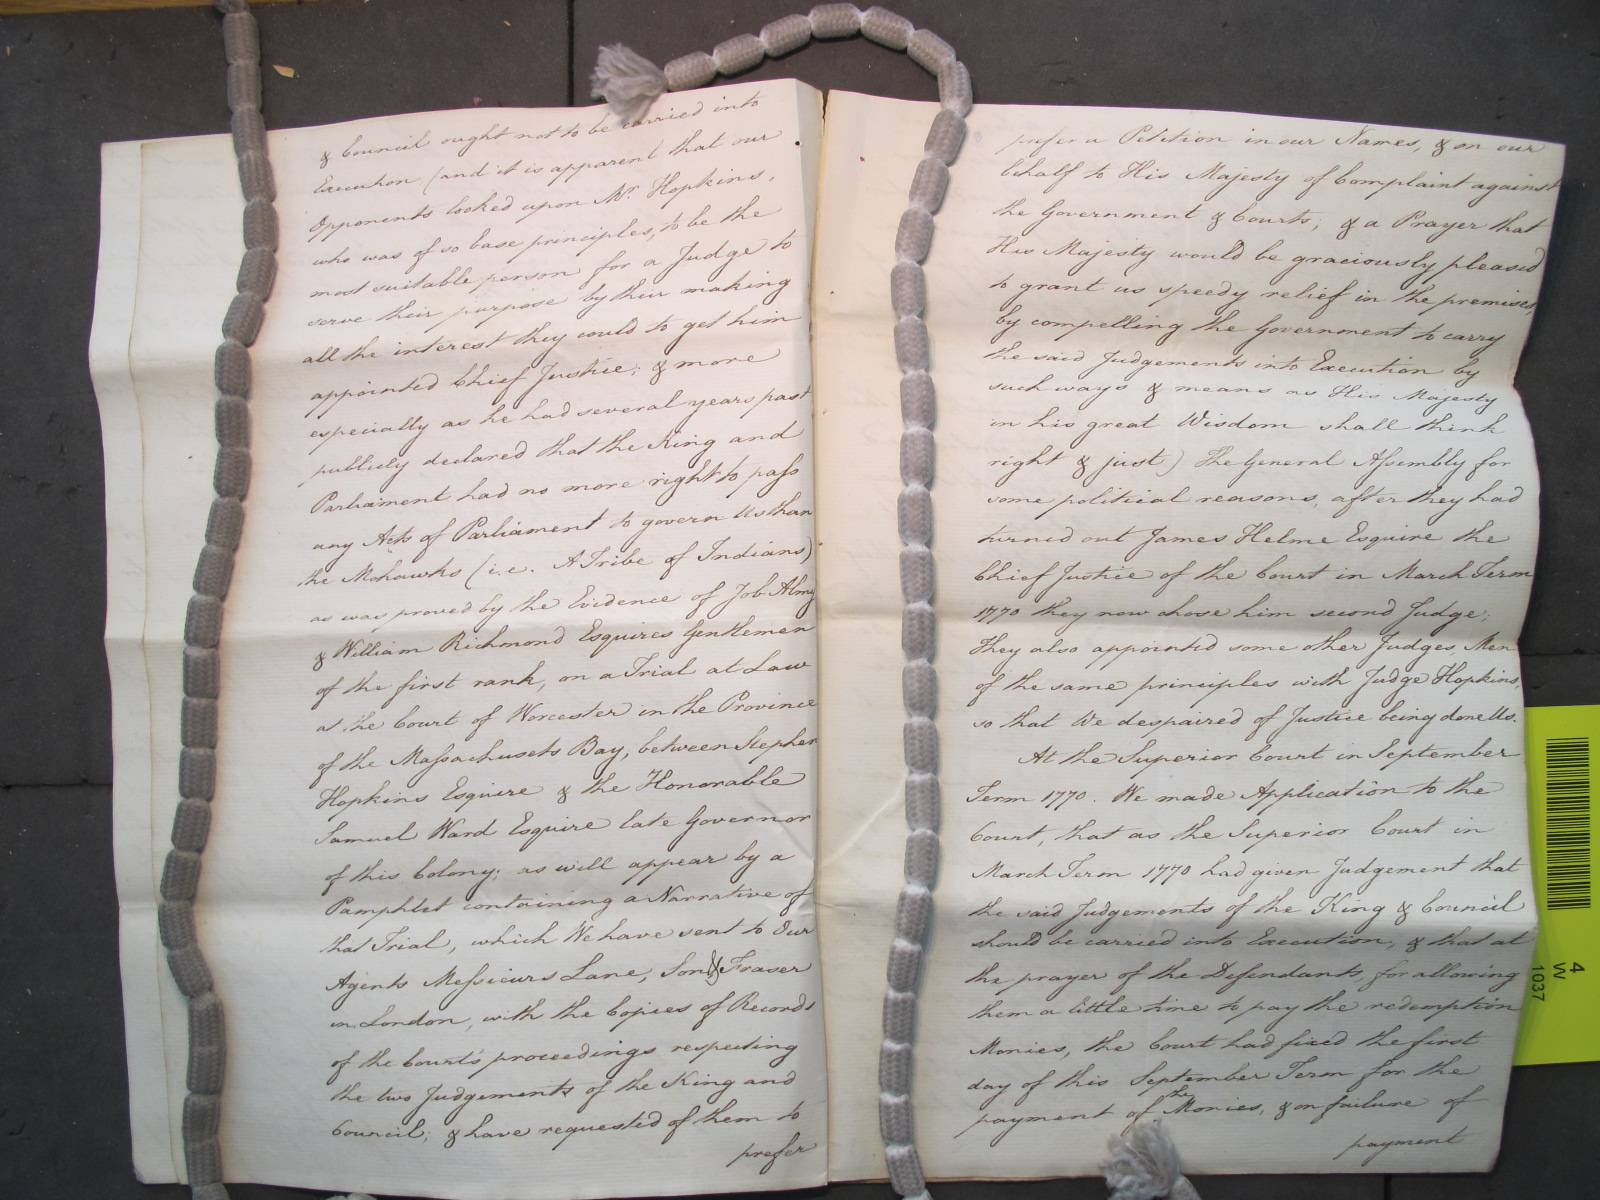 & Council ought not to be carried into
Execution (and it is apparent that our
Opponents looked upon Mr. Hopkins,
who was of so base principles, to be the
most suitable person for a Judge to
serve their purpose by their making
all the interest they could to get him
appointed Chief Justice; & more
especially as he had several years past
publicly declared that the King and
Parliament had no more right to pass
any Acts of Parliament to govern Us than
the Mohawks (i.e. A Tribe of Indians)
as was proved by the Evidence of Job Almy
& William Richmond Esquires Gentlemen
of the first rank, on a Trial at Law
at the Court of Worcester in the Province
of the Massachusets Bay, between Stephen
Hopkins Esquire & the Honorable
Samuel Ward Esquire late Governor
of this Colony; as will appear by a
Pamphlet containing a Narrative of
that Trial, which We have sent to Our
Agents Messieurs Lane, Son & Fraser
in London, with the Copies of Records
of the Court's proceedings respecting
the two Judgements of the King and
Council; & have requested of them to
prefer
prefer a Petition in our Names, & on our
behalf to His Majesty of Complaint against
the Government & Courts; & a Prayer that
His Majesty would be graciously pleased
to grant us speedy relief in the premises,
by compelling the Government to carry
the said Judgements into Execution by
such ways & means as His Majesty
in his great Wisdom shall think
right & just) The General Assembly for
some political reasons, after they had
turned out James Helme Esquire the
Chief Justice of the Court in March Term
1770 they now chose him second Judge;
They also appointed some other Judges, Men
of the same principles with Judge Hopkins,
so that We despaired of Justice being done Us.
At the Superior Court in September
Term 1770. We made Application to the
Court, that as the Superior Court in
March Term 1770 had given Judgement that
the said Judgements of the King & Council
should be carried into Execution, & that at
the prayer of the Defendants, for allowing
them a little time to pay the redemption
Monies, the Court had fixed the first
day of this September Term for the
payment of the Monies, & on failure of
payment
4
W
1037